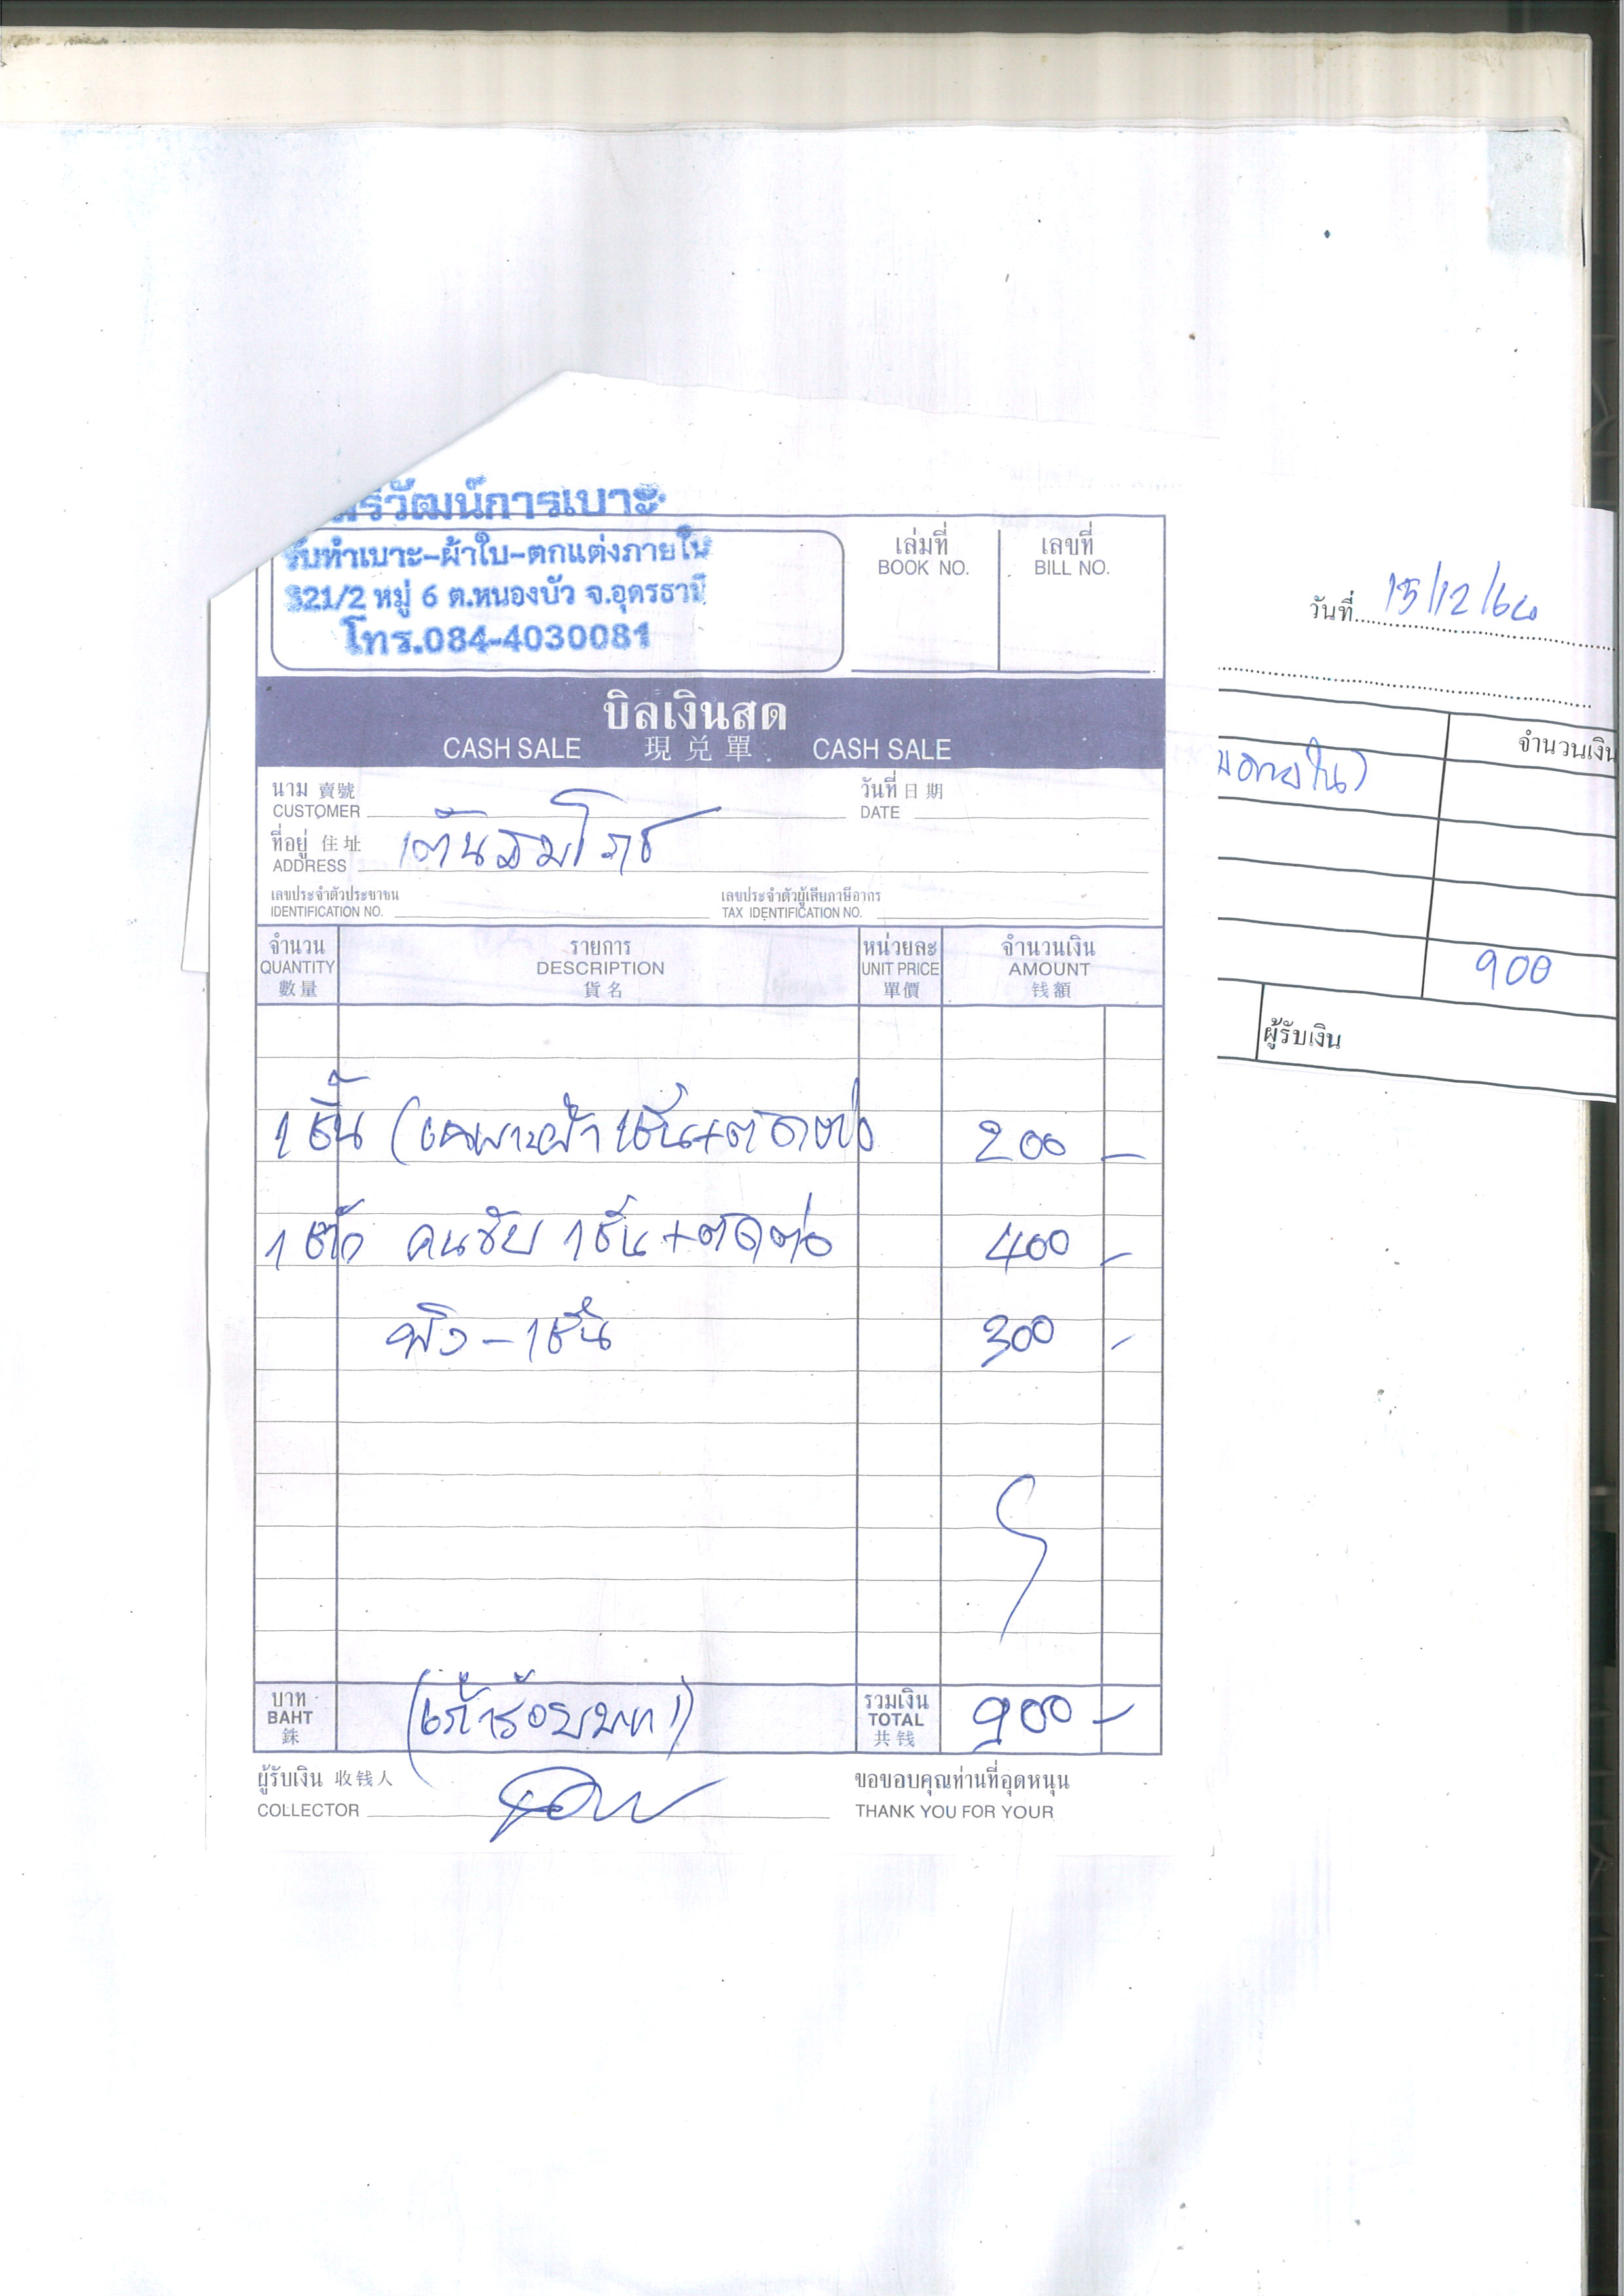 ศรีวัฒน์การเบาะ
รับทำเบาะ-ผ้าใบ-ตกแต่งภายใน
321/2 หมู่ 6 ต.หนองบัว จ.อุดรธานี
โทร.084-4030081
เล่มที่
BOOK NO.
เลขที่
BILL NO.
บิลเงินสด
CASH SALE 現兑單. CASH SALE
นาม 賣號
CUSTOMER
วันที่ 日期
DATE
ที่อยู่ 住址
ADDRESS
เลขประจำตัวประชาชน
IDENTIFICATION NO.
เลขประจำตัวผู้เสียภาษีอากร
TAX IDENTIFICATION NO.
จำนวน
QUANTITY
數量
รายการ
DESCRIPTION
貨名
หน่วยละ
UNIT PRICE
單價
จำนวนเงิน
AMOUNT
钱額
1 ชิ้น (เฉพาะผ้า 1ชิ้น+ตัดต่อ 200 -
1 ตัว คนขับ 1ชิ้น+ตัดต่อ 400 -
พิง - 1ชิ้น 300 -
บาท
BAHT
銖
(เก้าร้อยบาท)
รวมเงิน
TOTAL
共钱
900 -
ผู้รับเงิน 收钱人
COLLECTOR
ขอขอบคุณท่านที่อุดหนุน
THANK YOU FOR YOUR
วันที่ 15/12/64
จำนวนเงิน
900
ผู้รับเงิน